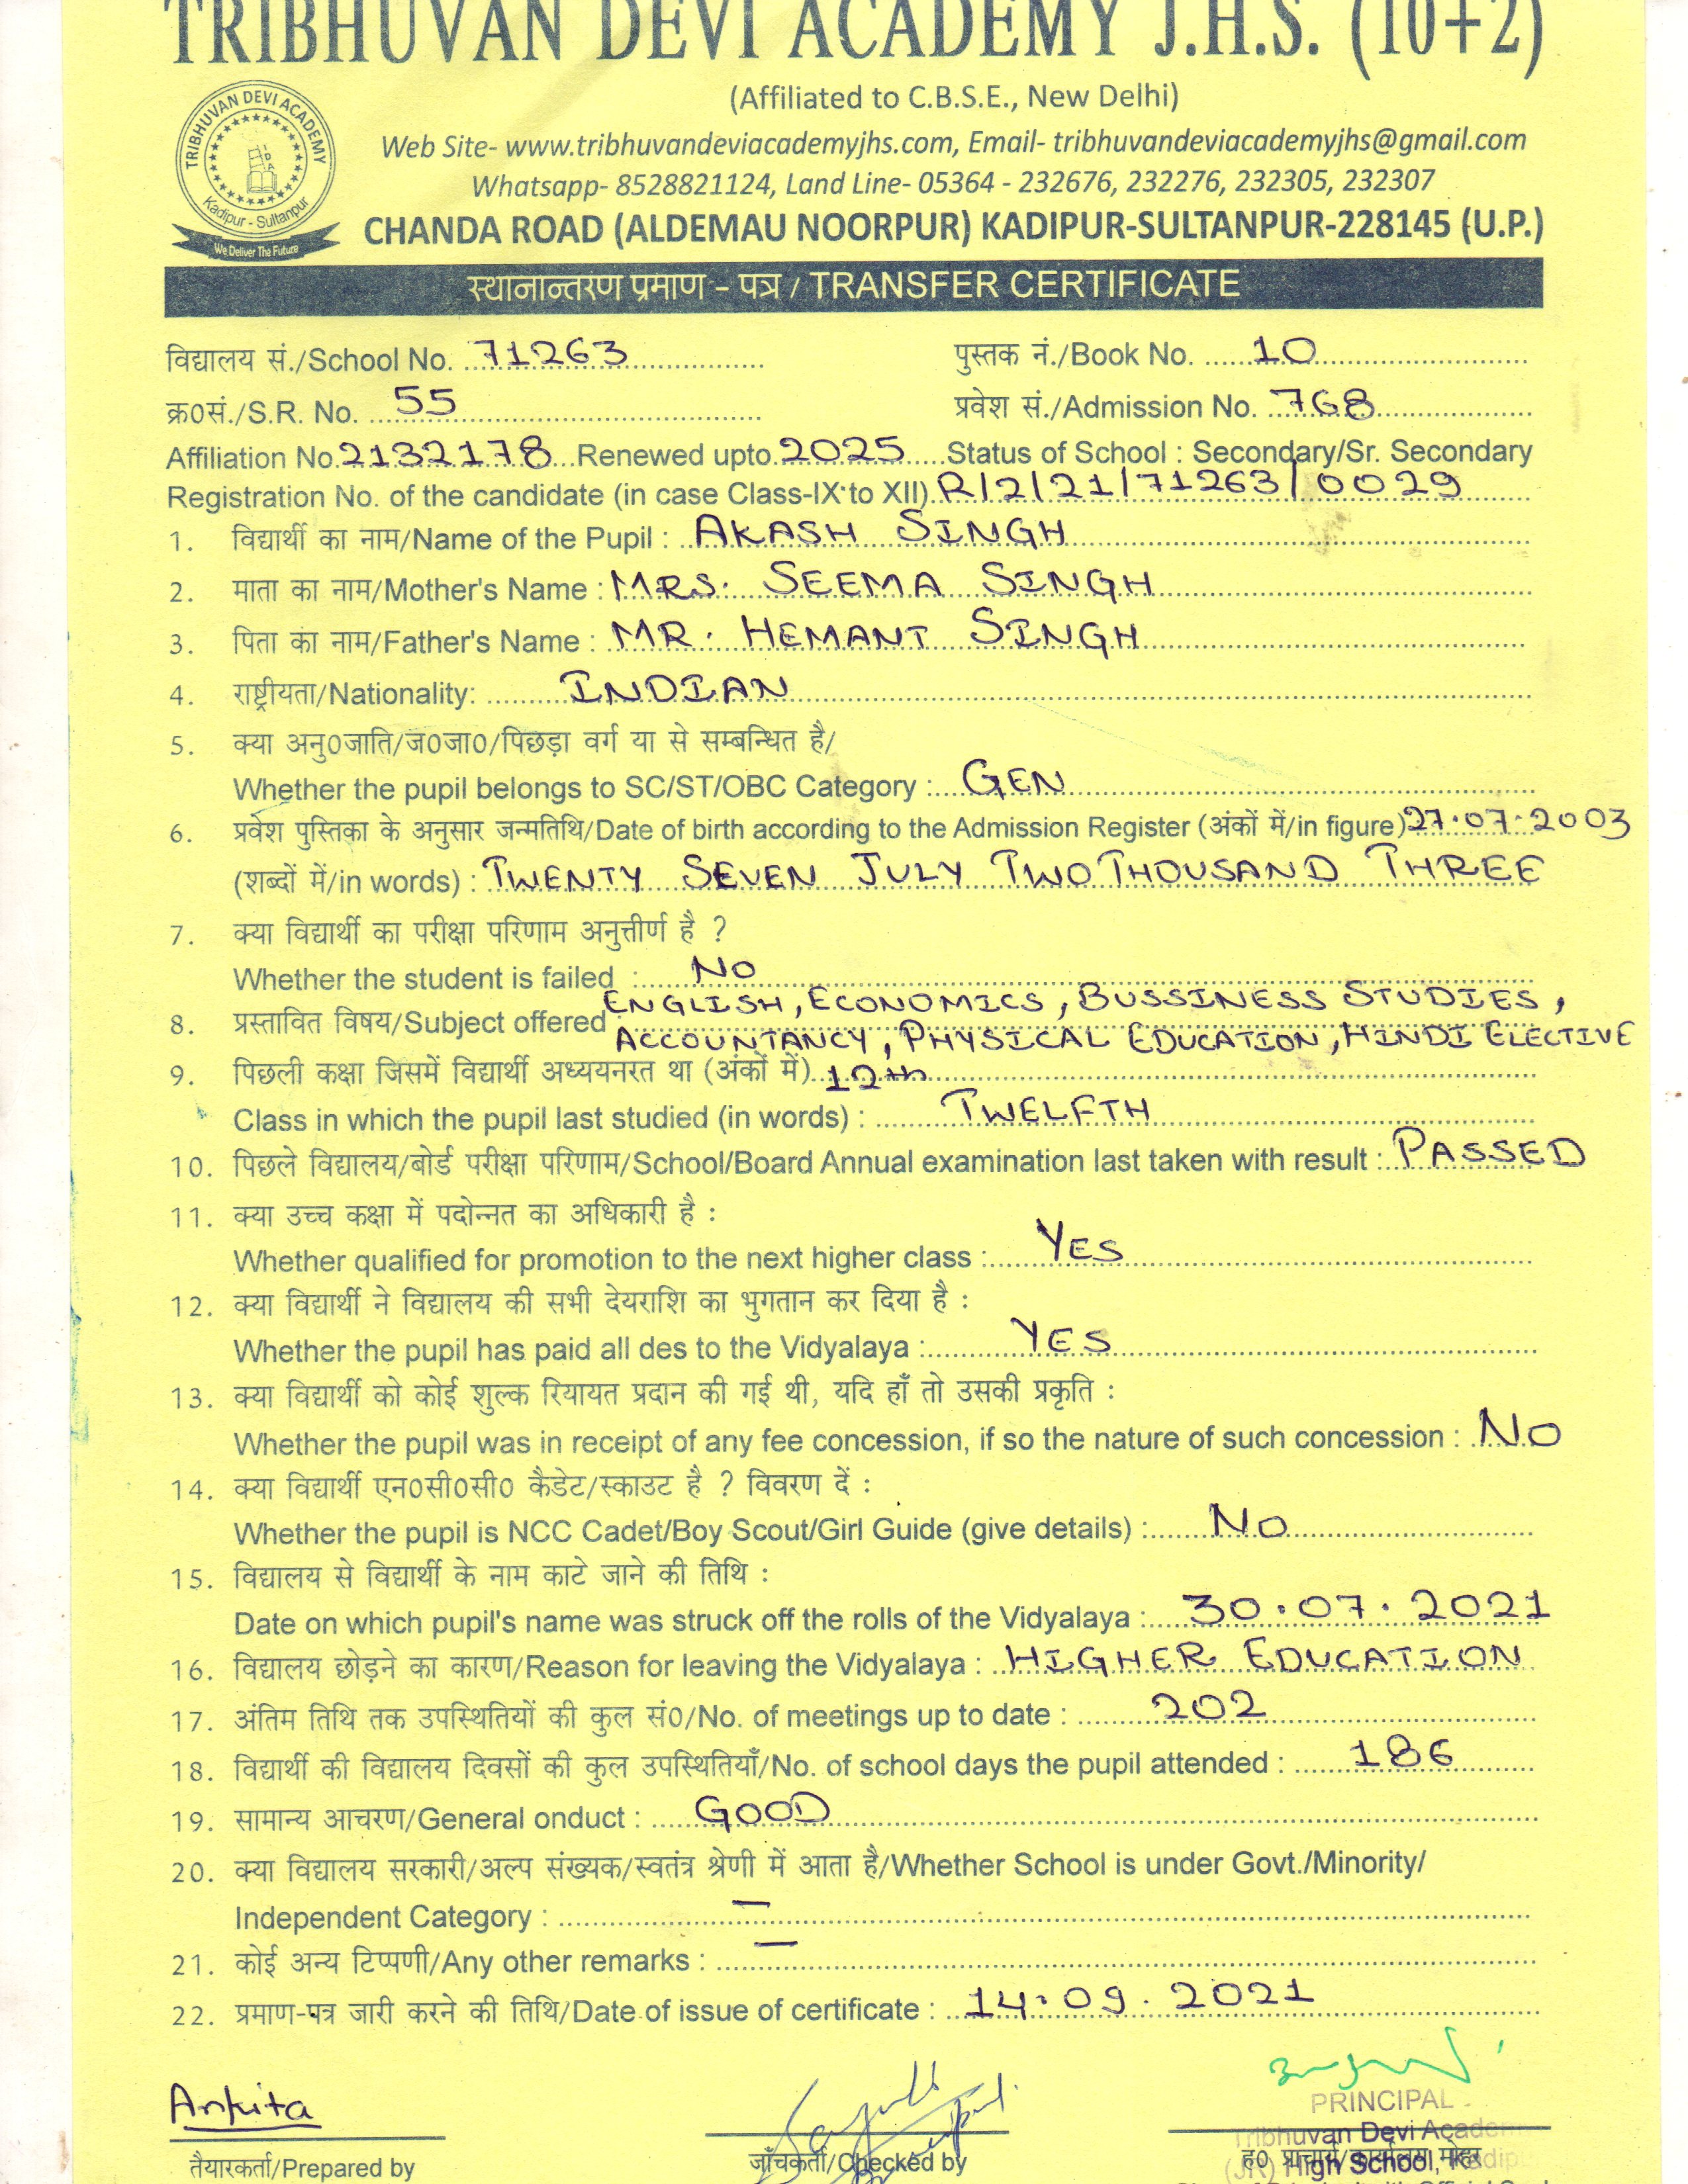 TRIBHUVAN DEVI ACADEMY J.H.S. (10+2)
(Affiliated to C.B.S.E., New Delhi)
TRIBHUVAN DEVI ACADEMY
Kadipur - Sultanpur
We Deliver The Future
Web Site- www.tribhuvandeviacademyjhs.com, Email- tribhuvandeviacademyjhs@gmail.com
Whatsapp- 8528821124, Land Line- 05364 - 232676, 232276, 232305, 232307
CHANDA ROAD (ALDEMAU NOORPUR) KADIPUR-SULTANPUR-228145 (U.P.)
स्थानान्तरण प्रमाण - पत्र / TRANSFER CERTIFICATE
विद्यालय सं./School No. 71263 पुस्तक नं./Book No. 10
क्र०सं./S.R. No. 55 प्रवेश सं./Admission No. 768
Affiliation No. 2132178 Renewed upto 2025 Status of School : Secondary/Sr. Secondary
Registration No. of the candidate (in case Class-IX to XII) R/2/21/71263/0029
1. विद्यार्थी का नाम/Name of the Pupil : AKASH SINGH
2. माता का नाम/Mother's Name : MRS. SEEMA SINGH
3. पिता का नाम/Father's Name : MR. HEMANT SINGH
4. राष्ट्रीयता/Nationality: INDIAN
5. क्या अनु०जाति/ज०जा०/पिछड़ा वर्ग या से सम्बन्धित है/
Whether the pupil belongs to SC/ST/OBC Category : GEN
6. प्रवेश पुस्तिका के अनुसार जन्मतिथि/Date of birth according to the Admission Register (अंकों में/in figure) 27.07.2003
(शब्दों में/in words) : TWENTY SEVEN JULY TWO THOUSAND THREE
7. क्या विद्यार्थी का परीक्षा परिणाम अनुत्तीर्ण है ?
Whether the student is failed : NO
8. प्रस्तावित विषय/Subject offered ENGLISH, ECONOMICS, BUSSINESS STUDIES,
ACCOUNTANCY, PHYSICAL EDUCATION, HINDI ELECTIVE
9. पिछली कक्षा जिसमें विद्यार्थी अध्ययनरत था (अंकों में) 12th
Class in which the pupil last studied (in words) : TWELFTH
10. पिछले विद्यालय/बोर्ड परीक्षा परिणाम/School/Board Annual examination last taken with result : PASSED
11. क्या उच्च कक्षा में पदोन्नत का अधिकारी है :
Whether qualified for promotion to the next higher class : YES
12. क्या विद्यार्थी ने विद्यालय की सभी देयराशि का भुगतान कर दिया है :
Whether the pupil has paid all des to the Vidyalaya : YES
13. क्या विद्यार्थी को कोई शुल्क रियायत प्रदान की गई थी, यदि हाँ तो उसकी प्रकृति :
Whether the pupil was in receipt of any fee concession, if so the nature of such concession : NO
14. क्या विद्यार्थी एन०सी०सी० कैडेट/स्काउट है ? विवरण दें :
Whether the pupil is NCC Cadet/Boy Scout/Girl Guide (give details) : NO
15. विद्यालय से विद्यार्थी के नाम काटे जाने की तिथि :
Date on which pupil's name was struck off the rolls of the Vidyalaya : 30.07.2021
16. विद्यालय छोड़ने का कारण/Reason for leaving the Vidyalaya : HIGHER EDUCATION
17. अंतिम तिथि तक उपस्थितियों की कुल सं०/No. of meetings up to date : 202
18. विद्यार्थी की विद्यालय दिवसों की कुल उपस्थितियाँ/No. of school days the pupil attended : 186
19. सामान्य आचरण/General onduct : GOOD
20. क्या विद्यालय सरकारी/अल्प संख्यक/स्वतंत्र श्रेणी में आता है/Whether School is under Govt./Minority/
Independent Category : —
21. कोई अन्य टिप्पणी/Any other remarks : —
22. प्रमाण-पत्र जारी करने की तिथि/Date of issue of certificate : 14.09.2021
Ankita
PRINCIPAL
Tribhuvan Devi Academy
तैयारकर्ता/Prepared by जाँचकर्ता/Checked by ह० प्राचार्य/कार्यालय मोहर
(JR) High School, Kadip